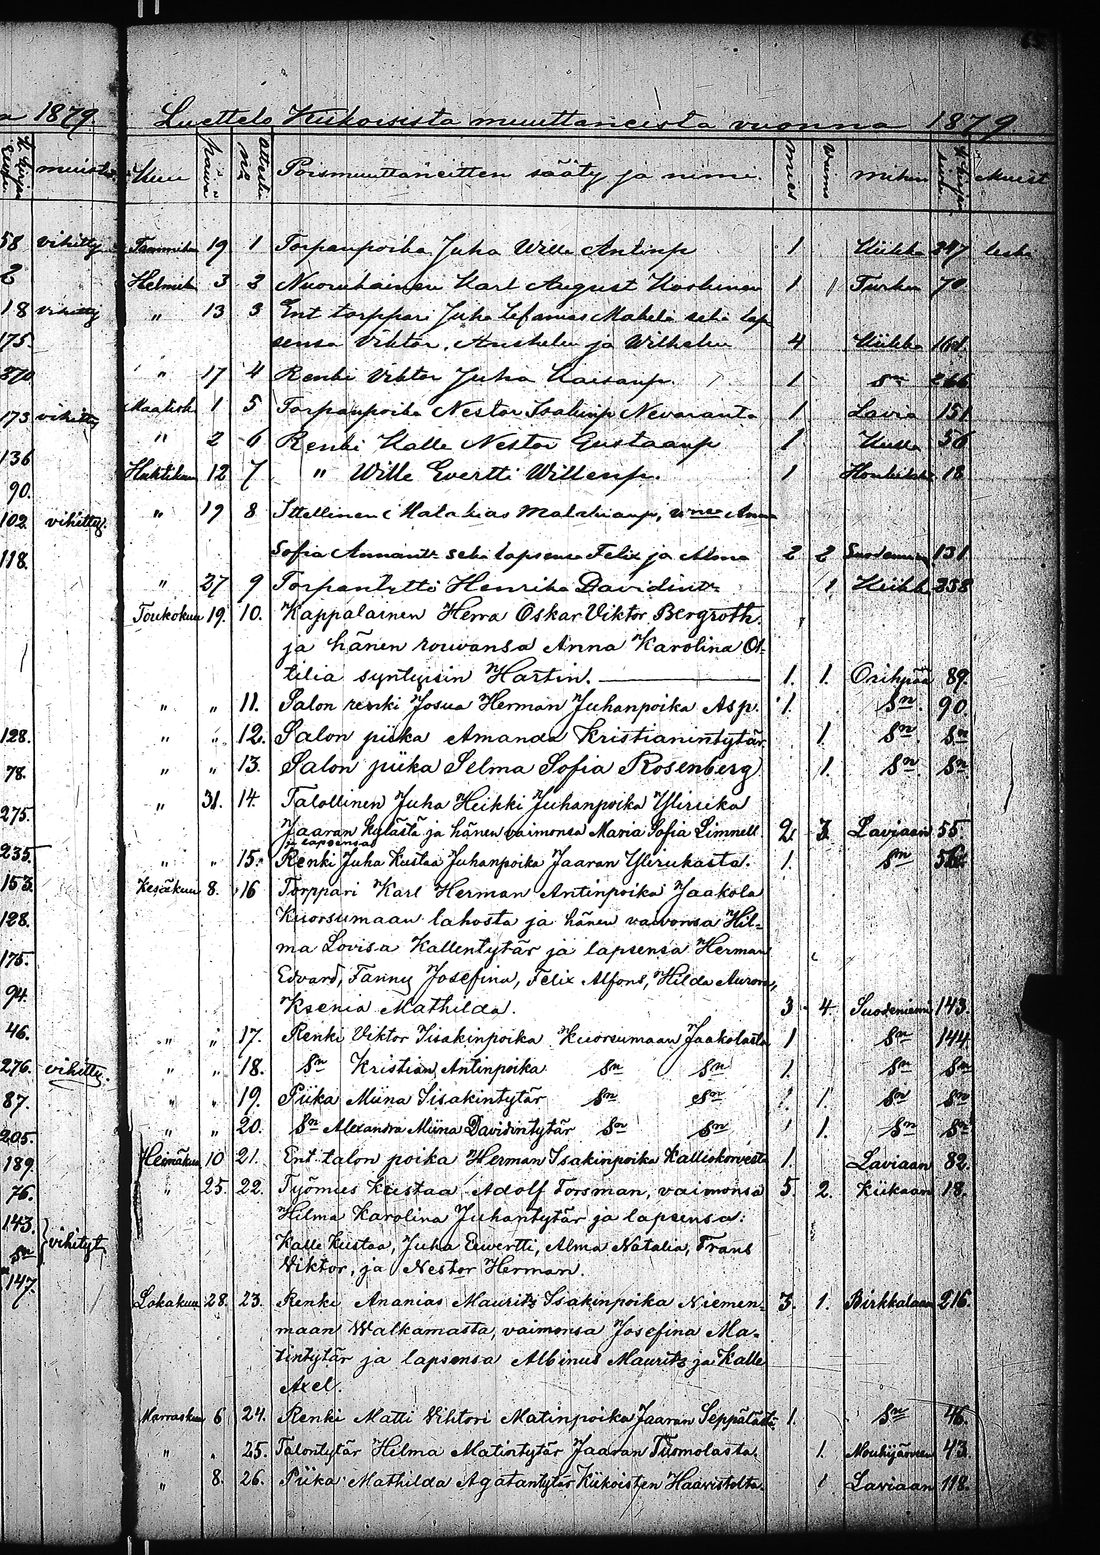 a 1879. Luettelo Kiikoisista muuttaneista vuonna 1879.
muist. Kuu Poismuuttaneitten sääty ja nimi. mies vaimo mihin Muist
58 vihitty Tammikuu 19 1 Torpanpoika Juha Wille Antinp 1 Kiikka 247 leski
2 Helmik 3 2 Nuorukainen Karl August Koskinen 1 Turkuu 70
18 vihitty " 13 3 Ent torppari Juha Mäkelä sekä lap
175. sensa Viktor, Anshelm ja Wilhelm 4 Kiikka 161.
370 " 17 4 Renki Viktor Juha Kaisanp. 1 Sn 266
173 vihitty Maalisk 1 5 Torpanpoika Nestor Isakinp Nevaranta 1 Lavia 151
136 " 2 6 Renki Kalle Nestor Gustaanp 1 56
90. Huhtikuu 12 7 " Wille Evertti Willenp. 1 18
102 vihitty. " 19 8 Ittellinen Malakias Malakianp, Anna
118. Sofia Annant: sekä lapsensa Felix ja Alma 2 2 Suodenniemi 131.
" 27 9 Torpantyttö Henrika Davidint: 1 Kiikka 238
Toukokuu 19. 10. Kappalainen Herra Oskar Viktor Bergroth.
ja hänen rouvansa Anna Karolina Ot-
tilia syntyisin Hartin. 1. 1. Oripää 89.
" " 11. Salon renki Josua Herman Juhanpoika Asp. 1. Sn. 90
128. " " 12. Salon piika Amanda Kristianintytär 1. Sn Sn
78. " " 13. Salon piika Selma Sofia Rosenberg 1. Sn. Sn.
" 31. 14. Talollinen Juha Heikki Juhanpoika Yliruika
275. Jaaran kylästä ja hänen vaimonsa Maria Sofia Limnell 2. 3. Laviaan 55.
ja lapsensa
235. " " 15. Renki Juha Kustaa Juhanpoika Jaaran Ylirukasta. 1. Sn
153. Kesäkuu 8. 16 Torppari Karl Herman Antinpoika Jaakola
128. Kuorsumaan lahosta ja hänen vaivonsa Hil-
175. ma Lovisa Kallentytär ja lapsensa Herman
Edvard, Fanny Josefina, Felix Alfons, Hilda Aurora,
94. Ksenia Mathilda. 3 4. Suodeniemi 143.
46. " " 17. Renki Viktor Iisakinpoika Kuorsumaan Jaakolasta 1 Sn 144
276. vihitty. " " 18. Sn Kristian Antinpoika Sn Sn 1. Sn Sn
87. " " 19. Piika Miina Iisakintytär Sn Sn 1. Sn Sn
205. " " 20. Sn Alexandra Miina Davidintytär Sn Sn 1. Sn Sn
189. Heinäkuu 10 21. Ent. talon poika Herman Isakinpoika Kalliokorvesta 1. Laviaan 82.
76. " 25. 22. Työmies Kustaa Adolf Forsman, vaimonsa 5. 2. Kiikaan 18.
143. vihityt Hilma Karolina Juhantytär ja lapsensa:
Sn Kalle Kustaa, Juha Ewertti, Alma Natalia, Frans
147. Viktor, ja Nestor Herman.
Lokakuu 28. 23. Renki Ananias Mauritz Isakinpoika Niemen- 3. 1. Birkkalaan 216.
maan Walkamasta, vaimonsa Josefina Ma-
tintytär ja lapsensa Albinus Mauritz ja Kalle
Axel.
Marraskuu 6 24. Renki Matti Vihtori Matinpoika Jaaran Seppälästä 1. Sn 46.
" " 25. Talontytär Hilma Matintytär Jaaran Tuomolasta 1. Mouhijärveen 43.
" 8. 26. Piika Mathilda Agatantytär Kiikoisten Haavistolta. 1 Laviaan 118.